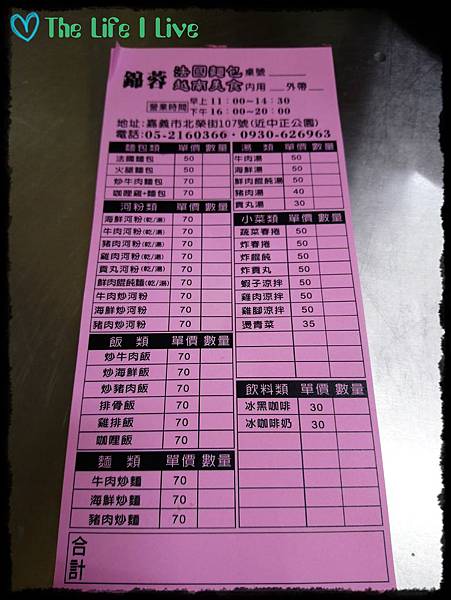 The Life I Live
錦蓉 法國麵包 越南美食
桌號
內用 外帶
營業時間 早上11:00~14:30 下午16:00~20:00
地址:嘉義市北榮街107號(近中正公園)
電話:05-2160366·0930-626963
麵包類 單價 數量
法國麵包 50
火腿麵包 50
炒牛肉麵包 70
咖哩雞+麵包 70
河粉類 單價 數量
海鮮河粉(乾/湯) 70
牛肉河粉(乾/湯) 70
豬肉河粉(乾/湯) 70
雞肉河粉(乾/湯) 70
貢丸河粉(乾/湯) 70
鮮肉餛飩麵(乾/湯) 70
牛肉炒河粉 70
海鮮炒河粉 70
豬肉炒河粉 70
飯類 單價 數量
炒牛肉飯 70
炒海鮮飯 70
炒豬肉飯 70
排骨飯 70
雞排飯 70
咖哩飯 70
麵類 單價 數量
牛肉炒麵 70
海鮮炒麵 70
豬肉炒麵 70
湯類 單價 數量
牛肉湯 50
海鮮湯 50
鮮肉餛飩湯 50
豬肉湯 40
貢丸湯 30
小菜類 單價 數量
蔬菜春捲 50
炸春捲 50
炸餛飩 50
炸貢丸 50
蝦子涼拌 50
雞肉涼拌 50
雞腳涼拌 50
燙青菜 35
飲料類 單價 數量
冰黑咖啡 30
冰咖啡奶 30
合計